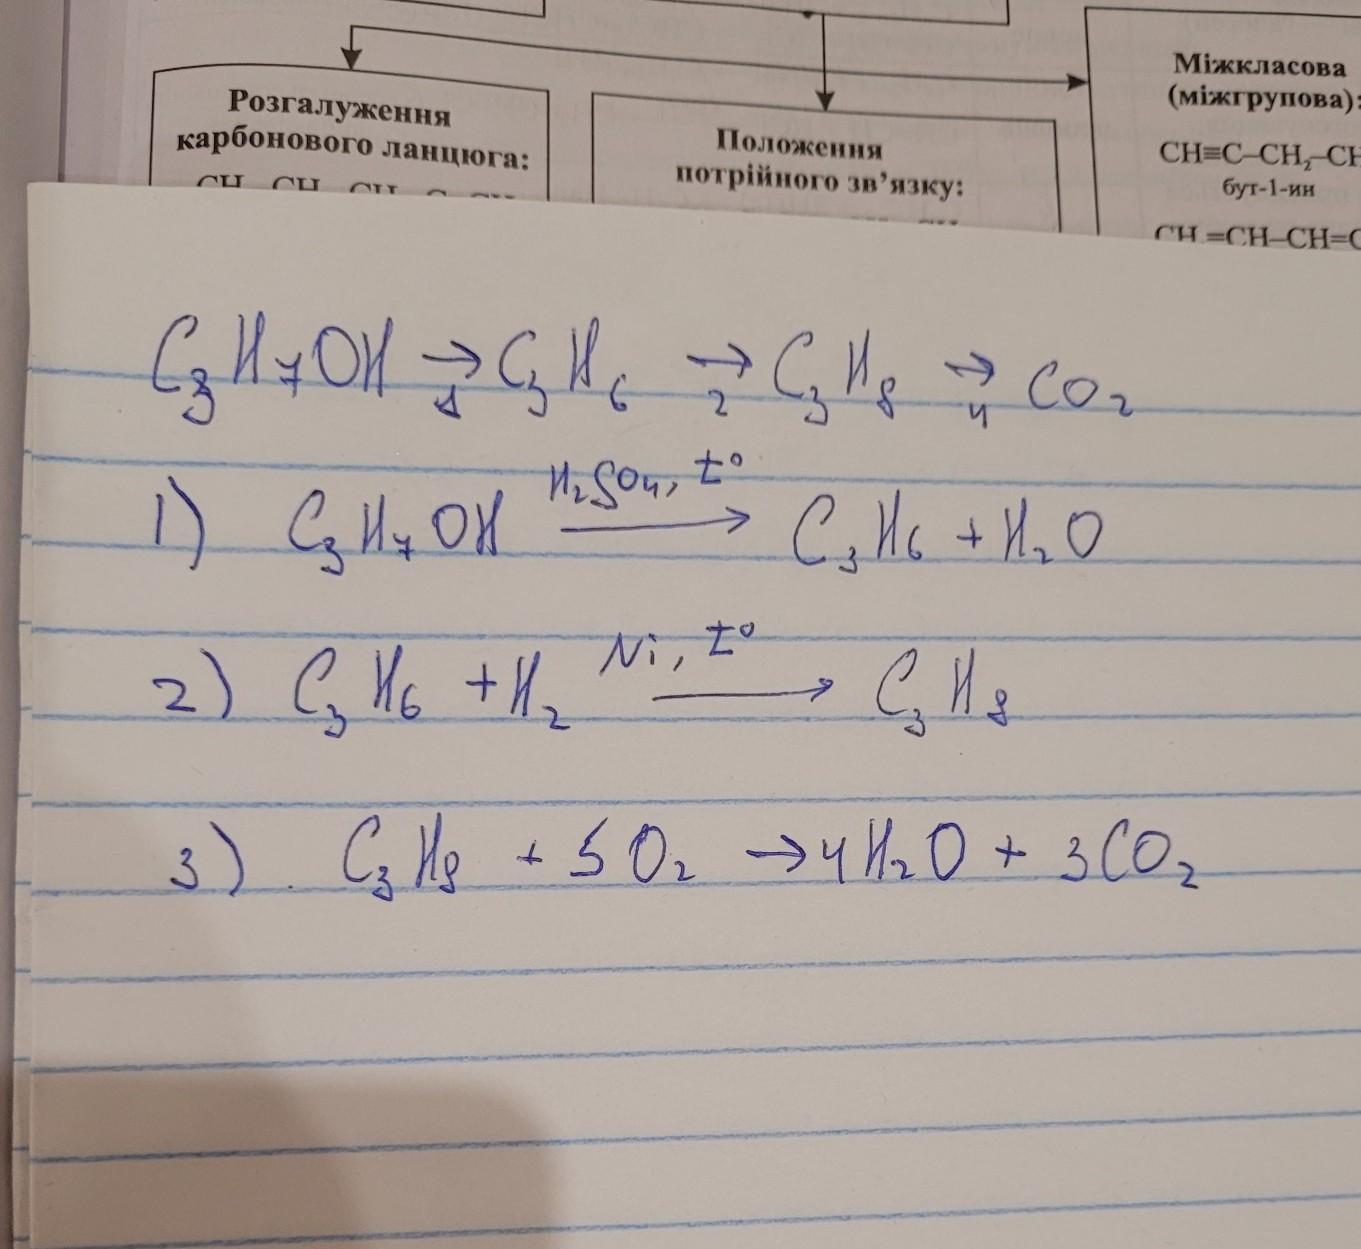 Розгалуження
карбонового ланцюга:
Положення
потрійного зв’язку:
Міжкласова
(міжгрупова):
CH≡C–CH₂–CH
бут-1-ин
CH =CH–CH=C
C₃H₇OH →₁ C₃H₆ →₂ C₃H₈ →₄ CO₂
1) C₃H₇OH H₂SO₄, t° → C₃H₆ + H₂O
2) C₃H₆ + H₂ Ni, t° → C₃H₈
3) . C₃H₈ + 5 O₂ → 4H₂O + 3CO₂